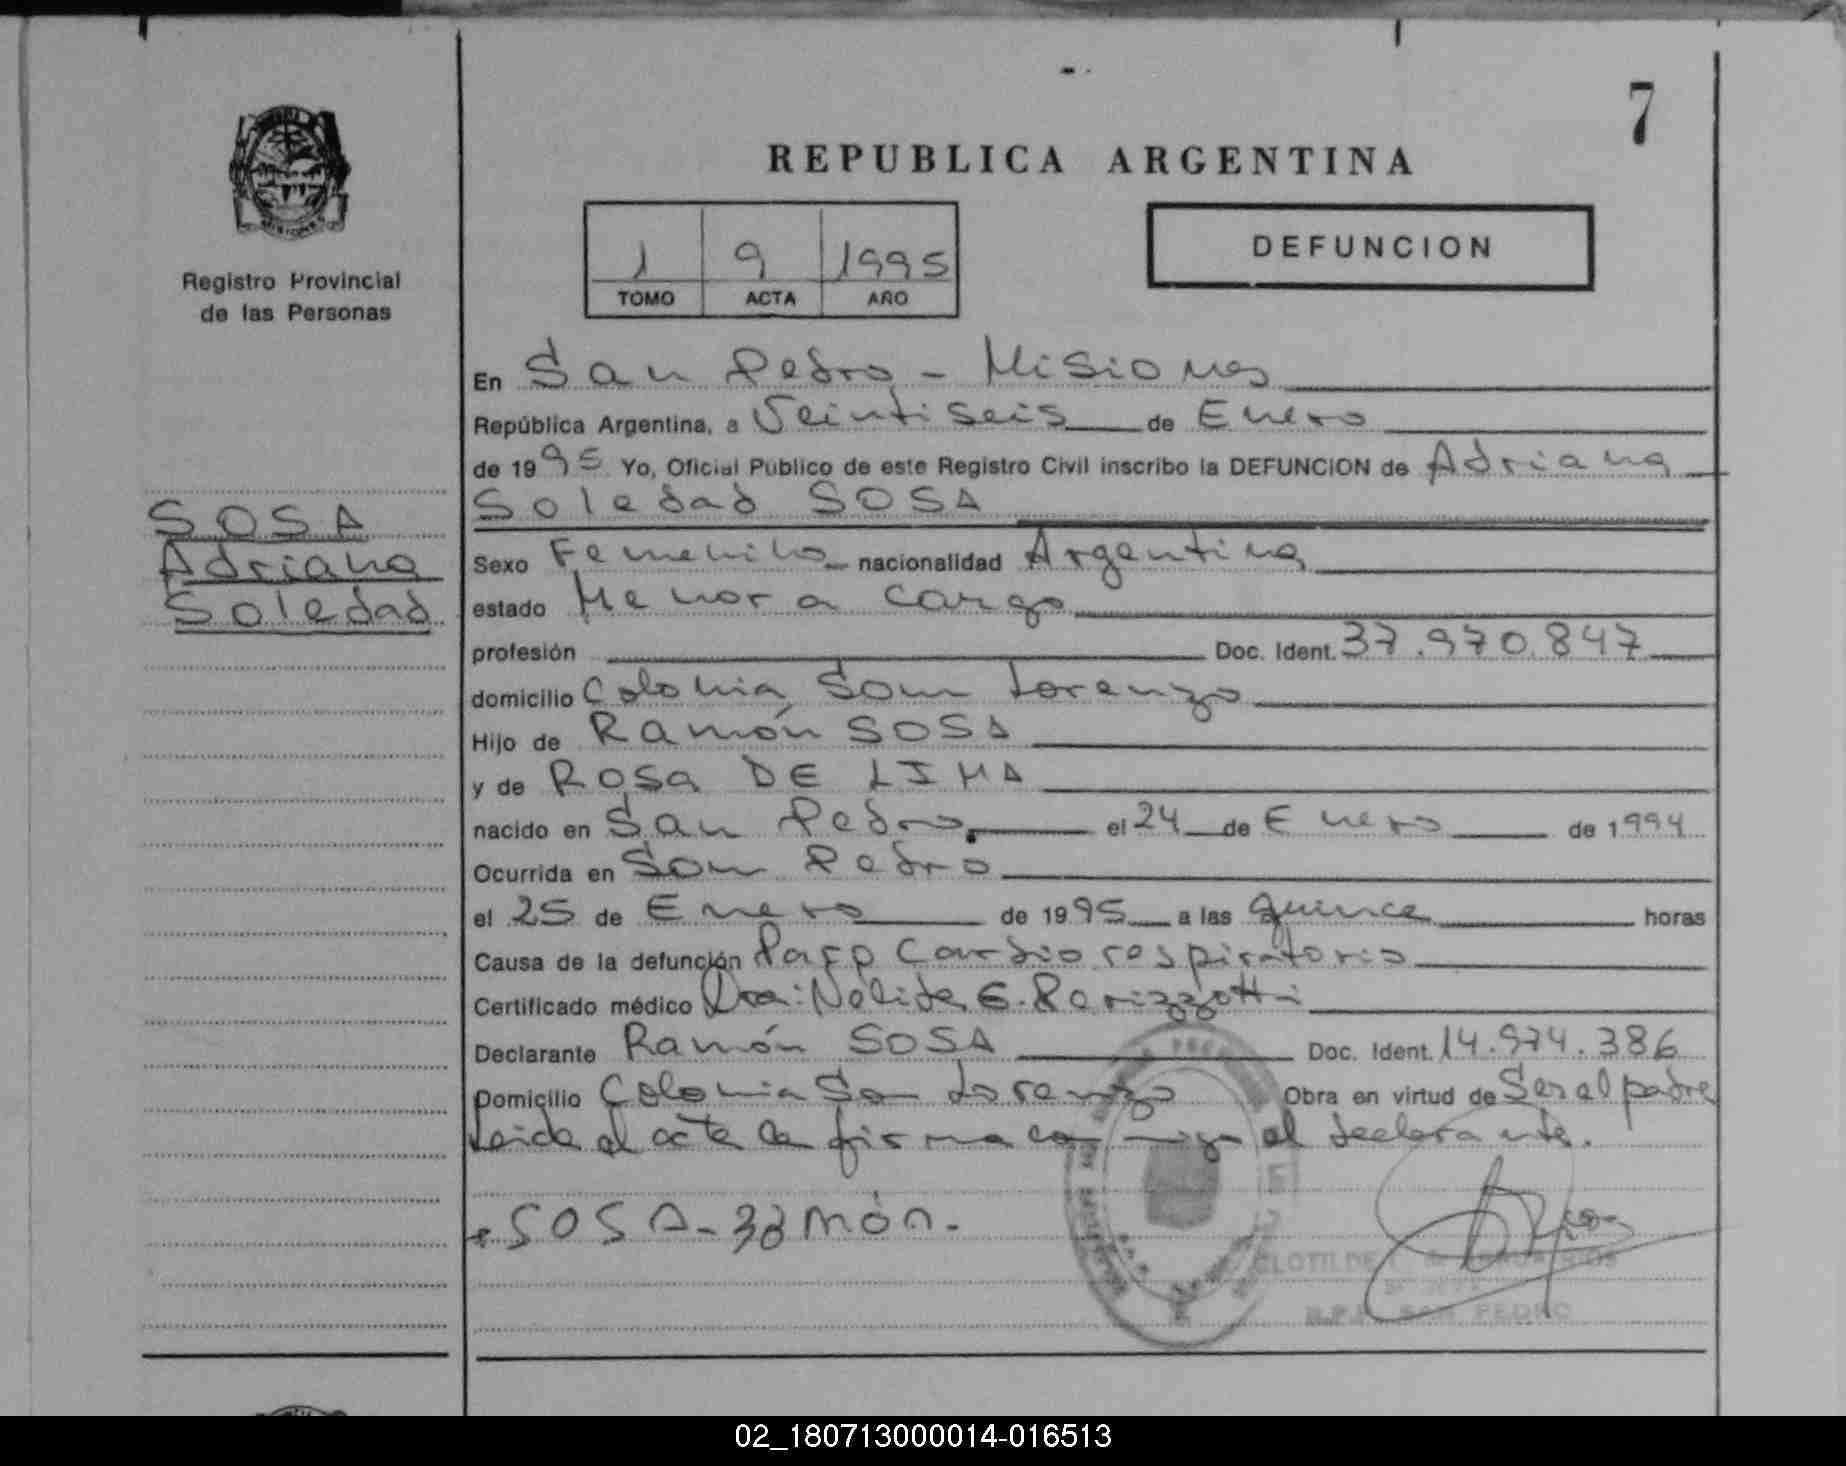 7
REPUBLICA ARGENTINA
Registro Provincial
de las Personas
1 9 1995
TOMO ACTA AÑO
DEFUNCION
En San Pedro - Misiones
República Argentina, a Veintiseis de Enero
de 1995 Yo, Oficial Público de este Registro Civil inscribo la DEFUNCION de Adriana
Soledad SOSA
SOSA
Adriana
Soledad
Sexo Femenino nacionalidad Argentina
estado Menor a cargo
profesión Doc. Ident. 37.970.847
domicilio Colonia San Lorenzo
Hijo de Ramón SOSA
y de ROSA DE LIMA
nacido en San Pedro, el 24 de Enero de 1994
Ocurrida en San Pedro
el 25 de Enero de 1995 a las quince horas
Causa de la defunción Paro Cardio respiratorio
Certificado médico Dra: Nelida E.
Declarante Ramón SOSA Doc. Ident. 14.974.386
Domicilio Colonia San Lorenzo Obra en virtud de Ser el padre
Leida el acta la firma conmigo el declarante.
SOSA - Ramón.
CLOTILDE
R.P.P. SAN PEDRO
02_180713000014-016513